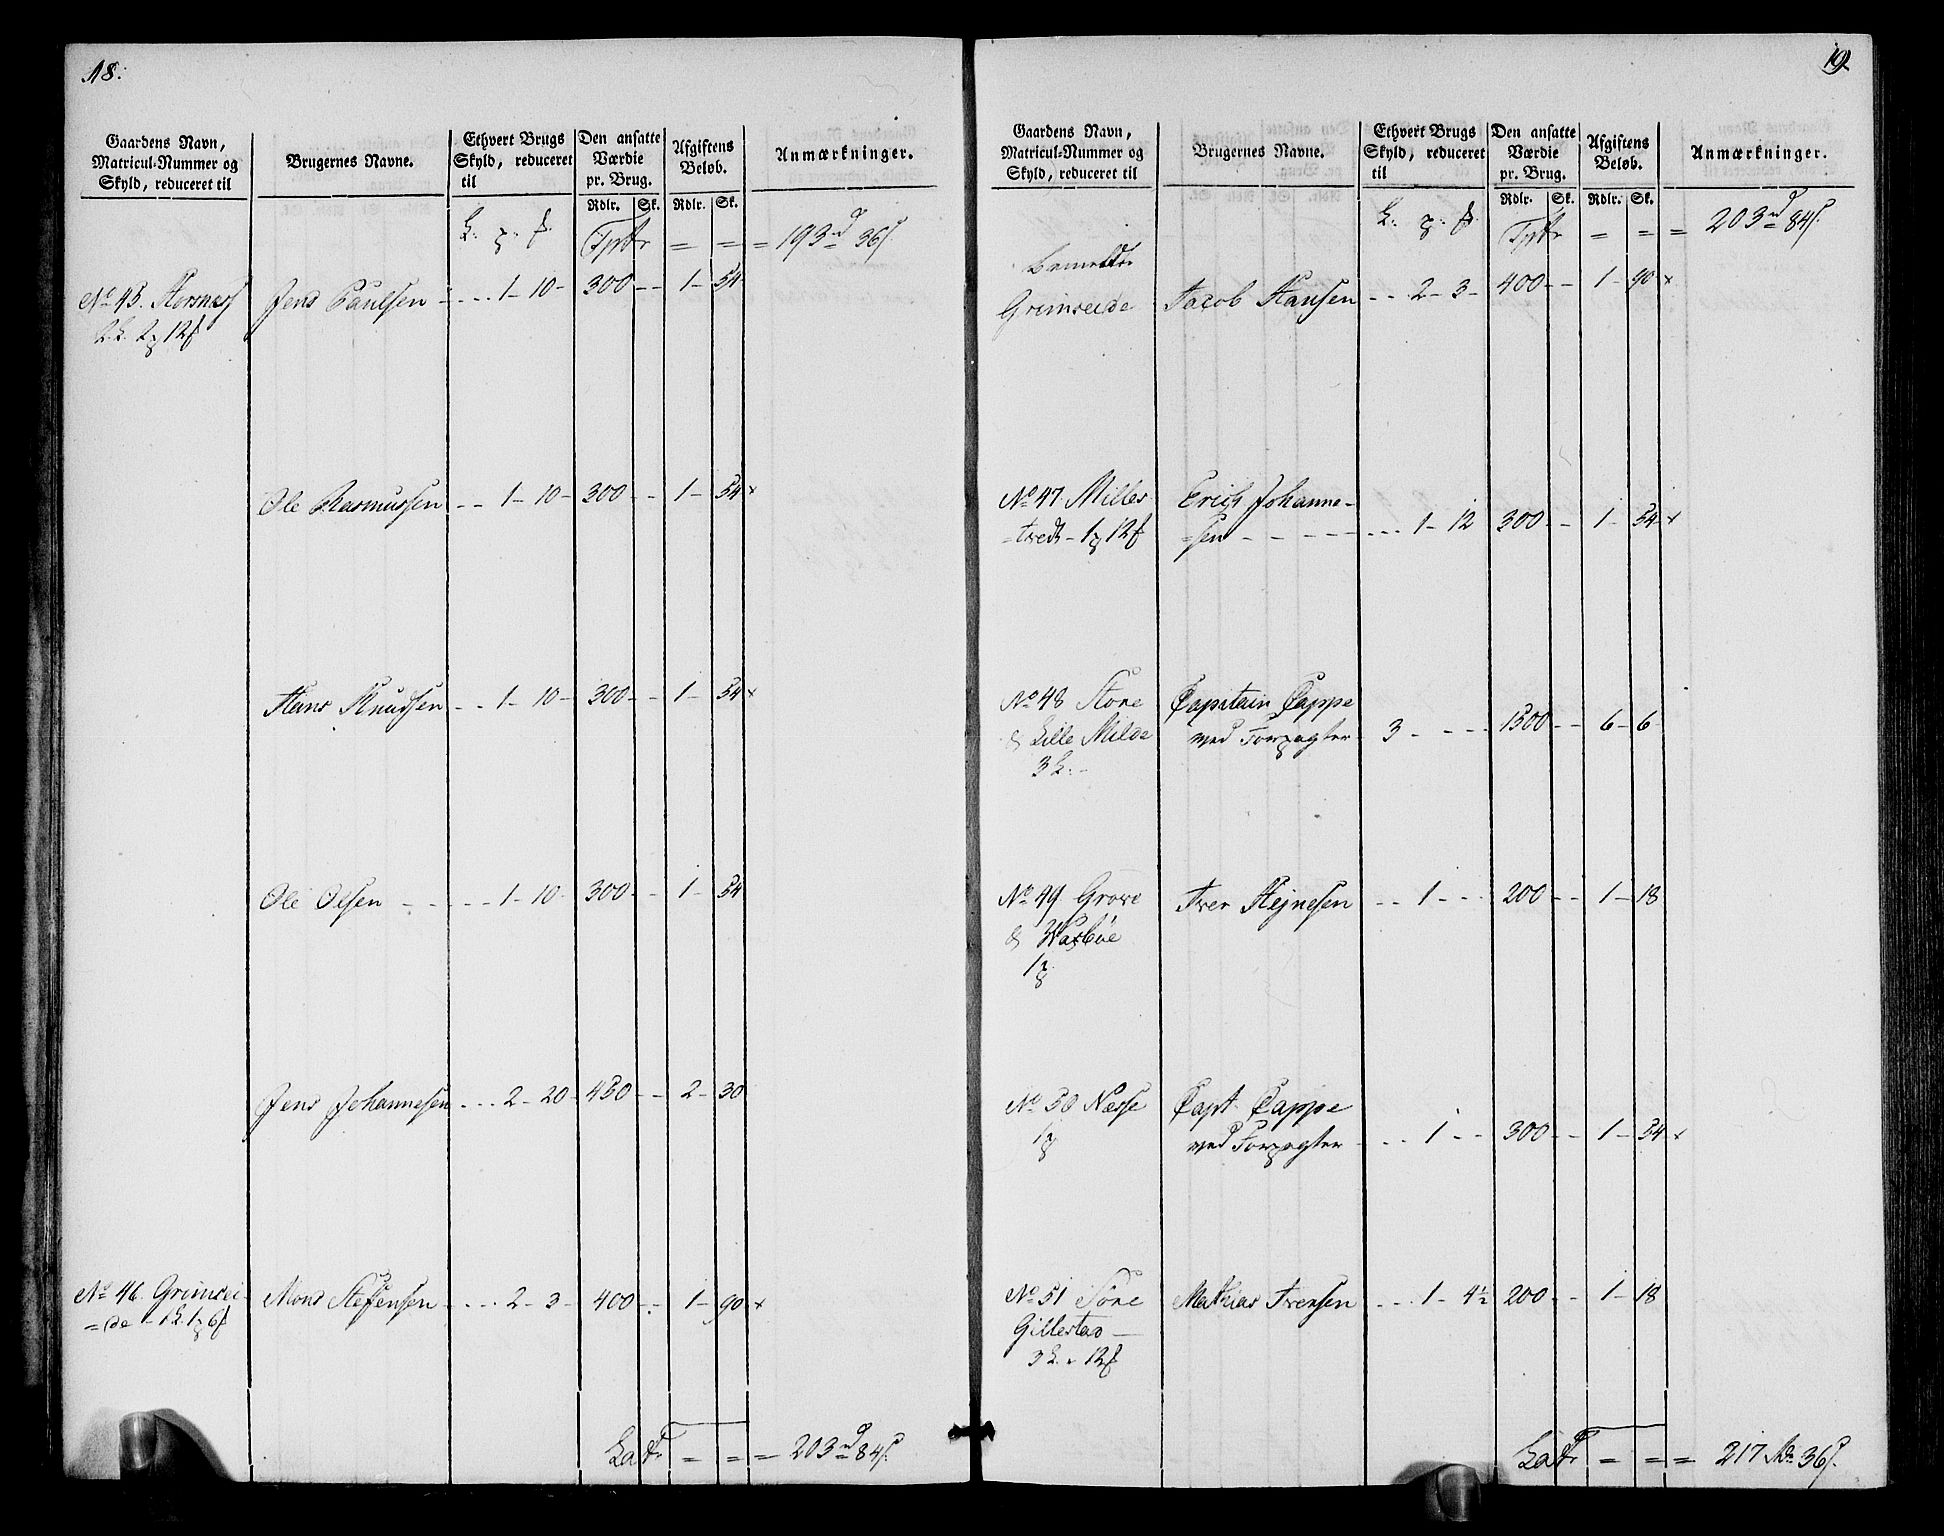 18.
Gaardens Navn, Matricul-Nummer og Skyld, reduceret til
Brugernes Navne.
Ethvert Brugs Skyld, reduceret til
Den ansatte Værdie pr. Brug.
Afgiftens Beløb.
Anmærkninger.
Rdlr. Sk. Rdlr. Sk.
Tptr = = = 193 36
No 45. Horsnes Jens Paulsen - - - 1 - 10 - 300 - - 1 - 54
Ole Rasmussen - - 1 - 10 - 300 - - 1 - 54 x
Hans Knudsen - - 1 - 10 - 300 - - 1 - 54 x
Ole Olsen - - - - 1 - 10 - 300 - - 1 - 54
Jens Johannesen - - - 2 - 20 - 450 - - 2 - 30
No 46. Grimsei Mons Steffensen - - - 2 - 3 - 400 - - 1 - 90 x
= de
Latr = = = 203 84
19
Gaardens Navn, Matricul-Nummer og Skyld, reduceret til
Brugernes Navne.
Ethvert Brugs Skyld, reduceret til
Den ansatte Værdie pr. Brug.
Afgiftens Beløb.
Anmærkninger.
Rdlr. Sk. Rdlr. Sk.
Tptr = = = 203 84
Grimseide Jacob Hansen - - 2 - 3 - 400 - - 1 - 90 x
No 47. Milles Erich Johanne-
= tvedt =sen - - - - - - 1 - 12 300 - - 1 - 54 x
No 48 Store Capitain Cappe
& Lille Milde ved Forpagter 3 - - - - 1500 - - 6 - 6
No 49 Grove Iver Stejnesen - - 1 - - 200 - - 1 - 18
&
No 50 Nesse Capt. Cappe
ved Forpagter - - - 1 - - 300 - - 1 - 54 x
No 51 Søre Mathias Iversen - - - 1 - 4½ 200 - - 1 - 18
Gillestad
Latr = = = 217 36